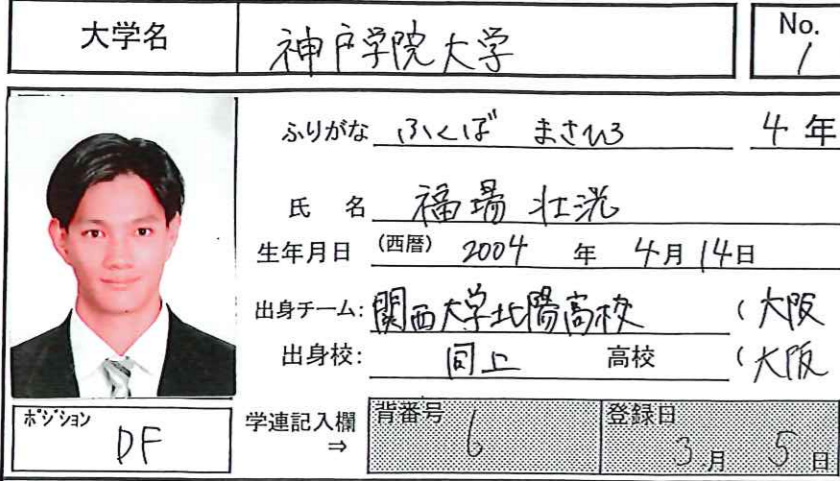 大学名 神戸学院大学 No. 1
ふりがな ふくば まさひろ 4年
氏 名 福場 壮洸
生年月日 (西暦) 2004 年 4月 14日
出身チーム: 関西大学北陽高校 (大阪
出身校: 同上 高校 (大阪
ポジション DF
学連記入欄 ⇒ 背番号 6 登録日 3月 5日